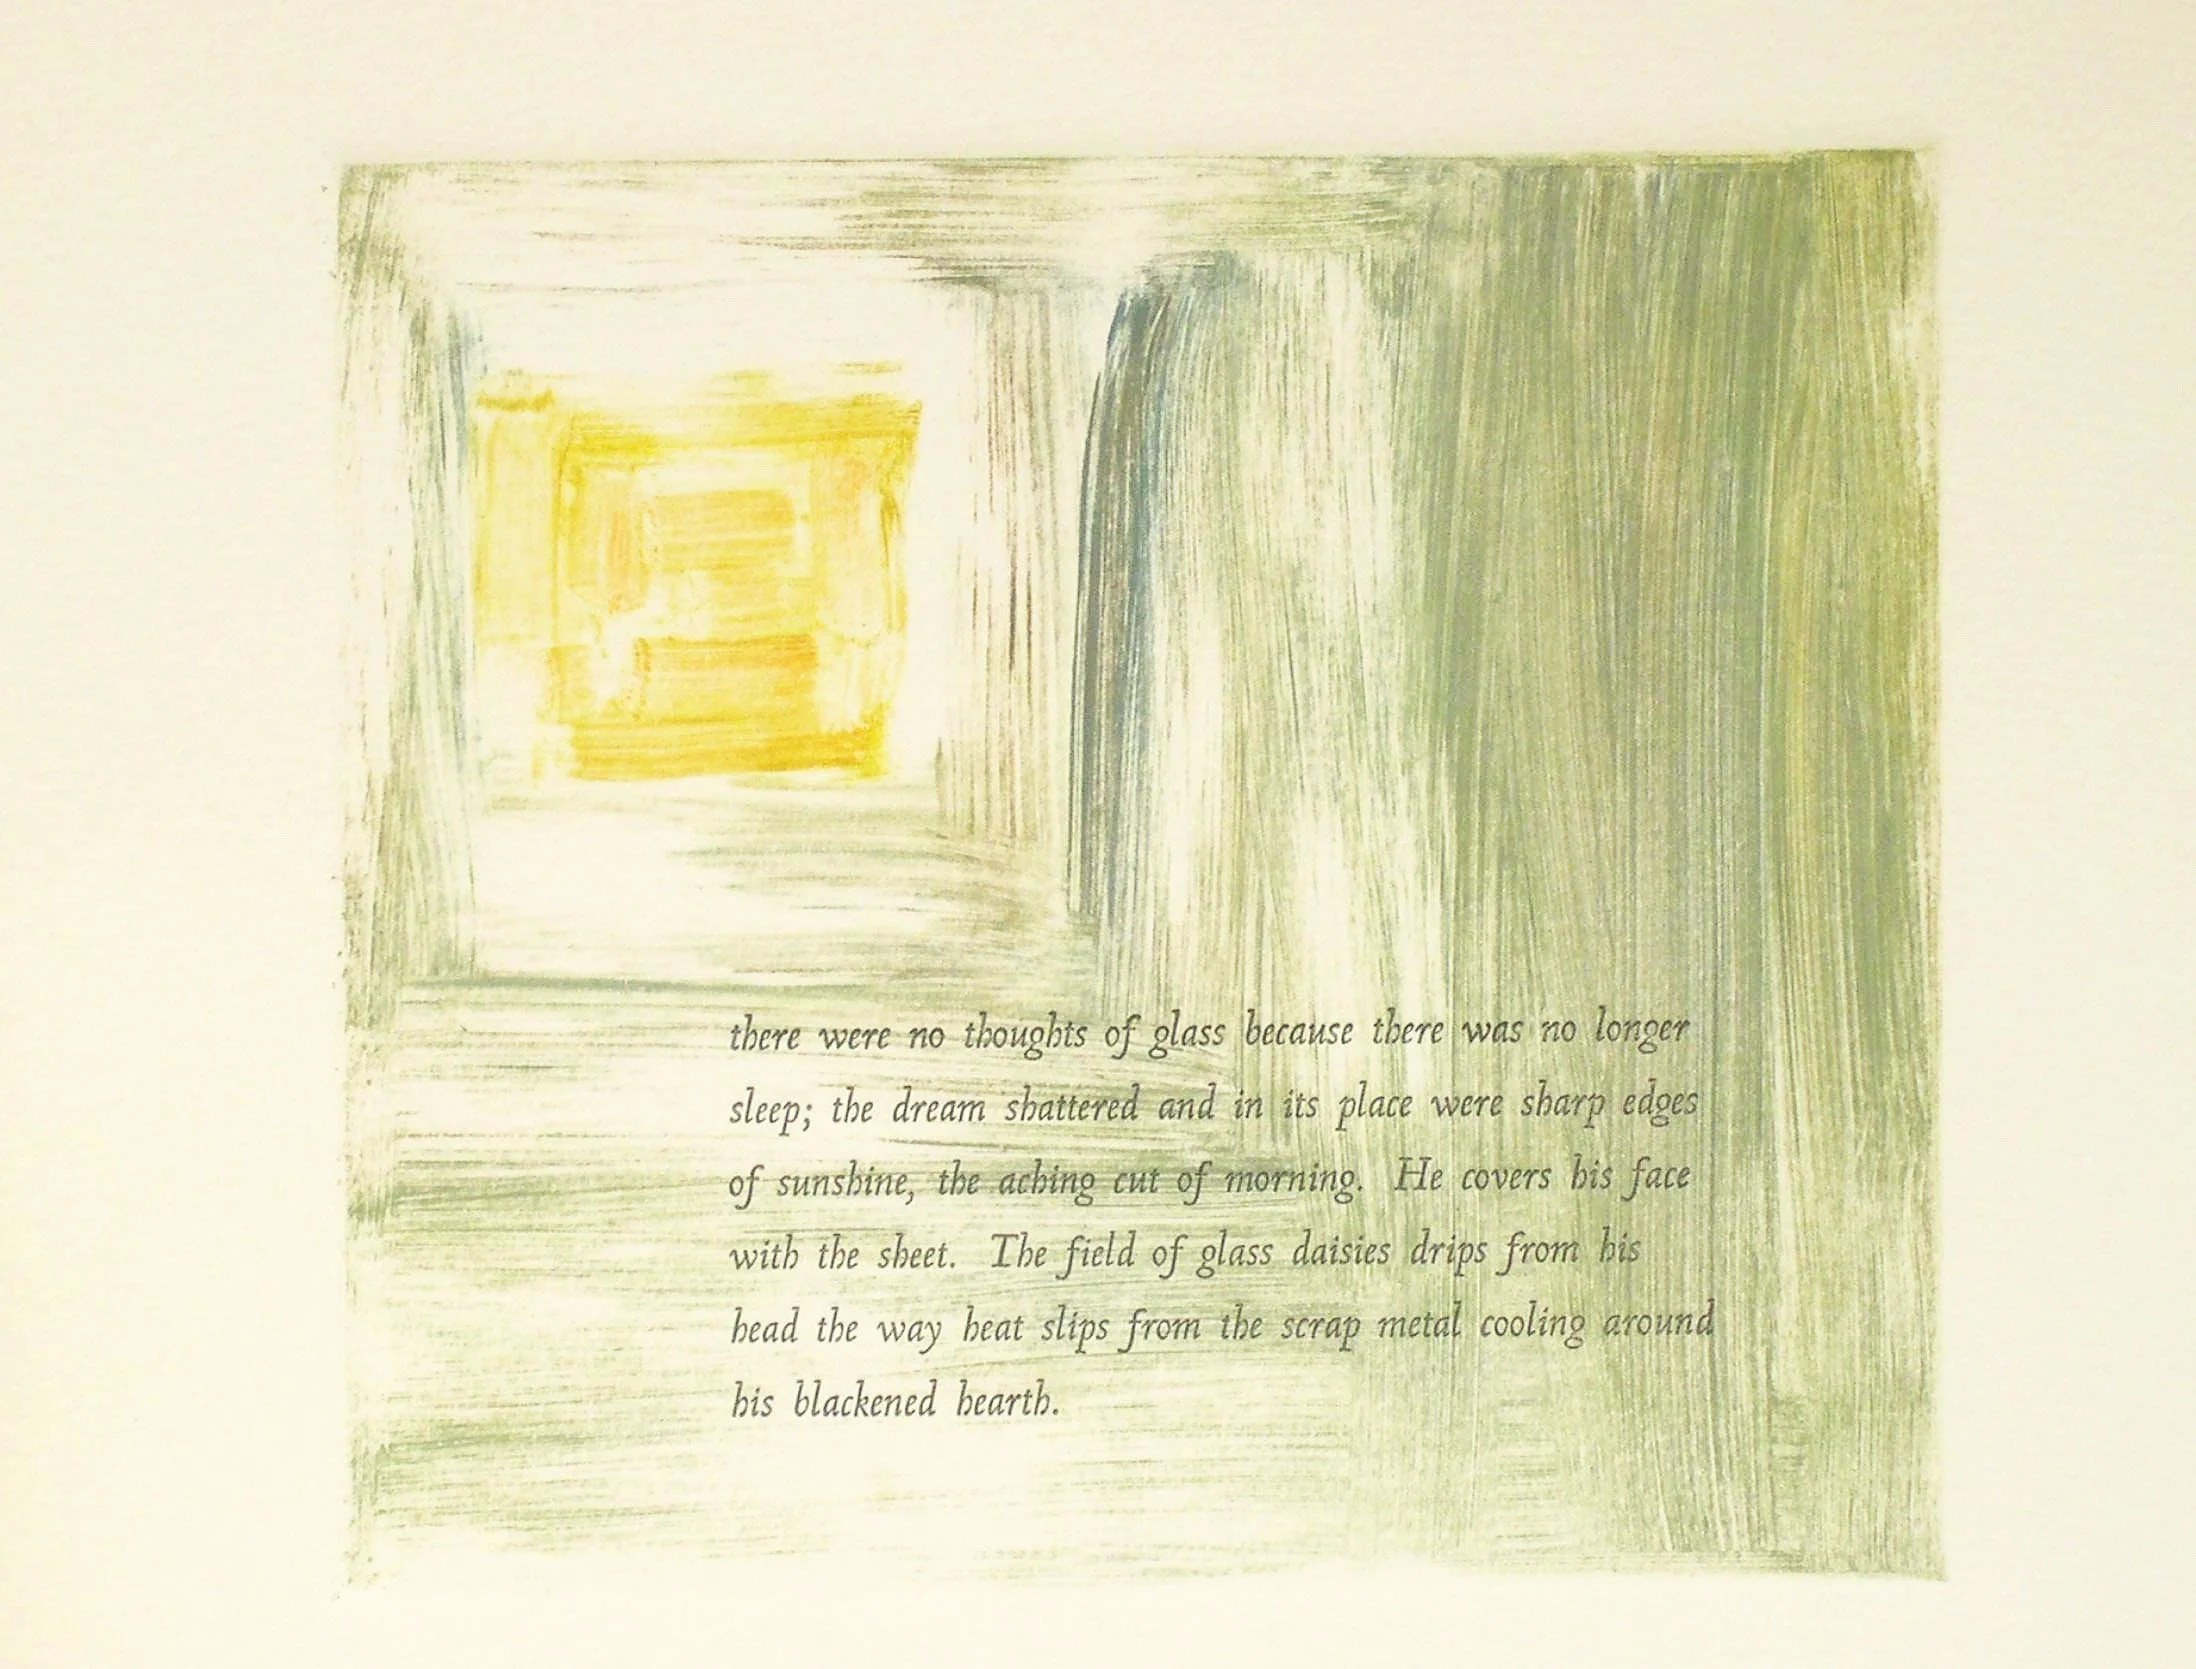 there were no thoughts of glass because there was no longer
sleep; the dream shattered and in its place were sharp edges
of sunshine, the aching cut of morning. He covers his face
with the sheet. The field of glass daisies drips from his
head the way heat slips from the scrap metal cooling around
his blackened hearth.